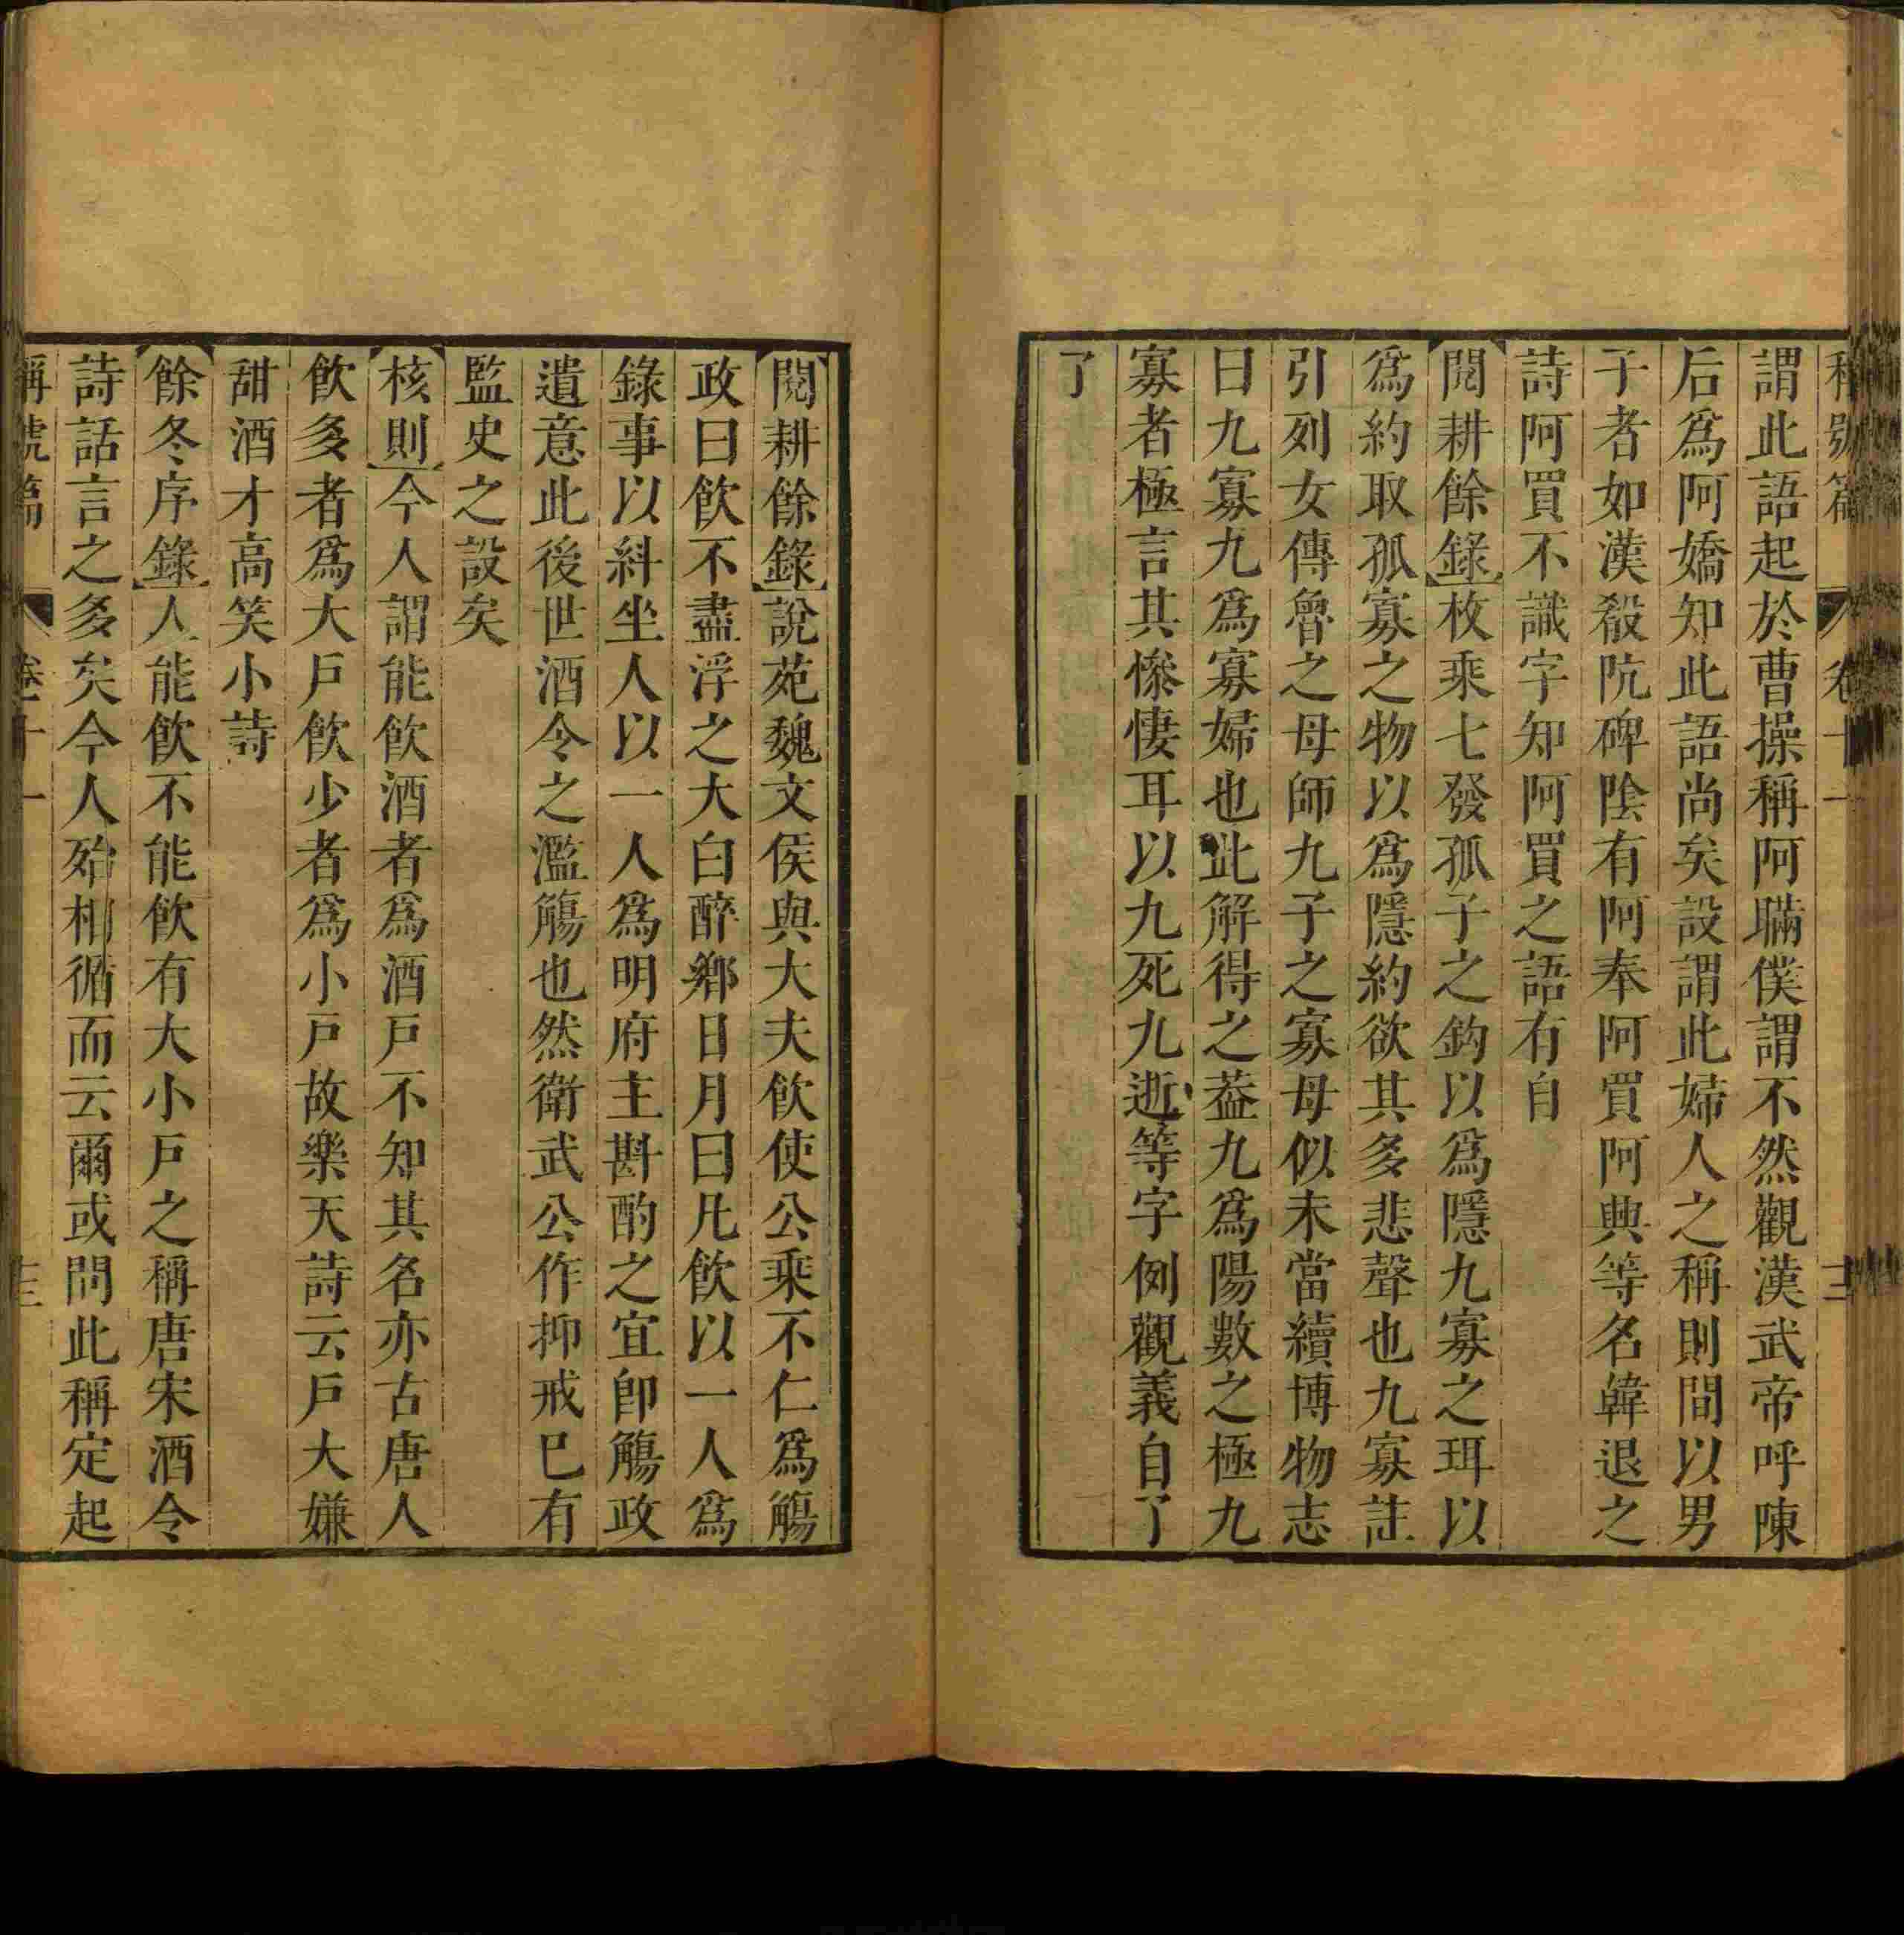 稱號篇 卷十一
謂此語起於曹操稱阿瞞僕謂不然觀漢武帝呼陳
后爲阿嬌知此語尚矣設謂此婦人之稱則間以男
子者如漢殽阬碑陰有阿奉阿買阿興等名韓退之
詩阿買不識字知阿買之語有自
閱耕餘錄枚乘七發孤子之鈎以爲隱九寡之珥以
爲約取孤寡之物以爲隱約欲其多悲聲也九寡註
引列女傳魯之母師九子之寡母似未當續博物志
曰九寡九爲寡婦也此解得之葢九爲陽數之極九
寡者極言其慘悽耳以九死九逝等字例觀義自了
了
閱耕餘錄說苑魏文侯與大夫飲使公乘不仁爲觴
政曰飲不盡浮之大白醉鄉日月曰凡飲以一人爲
錄事以糾坐人以一人爲明府主斟酌之宜卽觴政
遺意此後世酒令之濫觴也然衛武公作抑戒已有
監史之設矣
核則今人謂能飲酒者爲酒戸不知其名亦古唐人
飲多者爲大戸飲少者爲小戸故樂天詩云戸大嫌
甜酒才高笑小詩
餘冬序錄人能飲不能飲有大小戸之稱唐宋酒令
詩話言之多矣今人殆相循而云爾或問此稱定起
稱號篇 卷十一